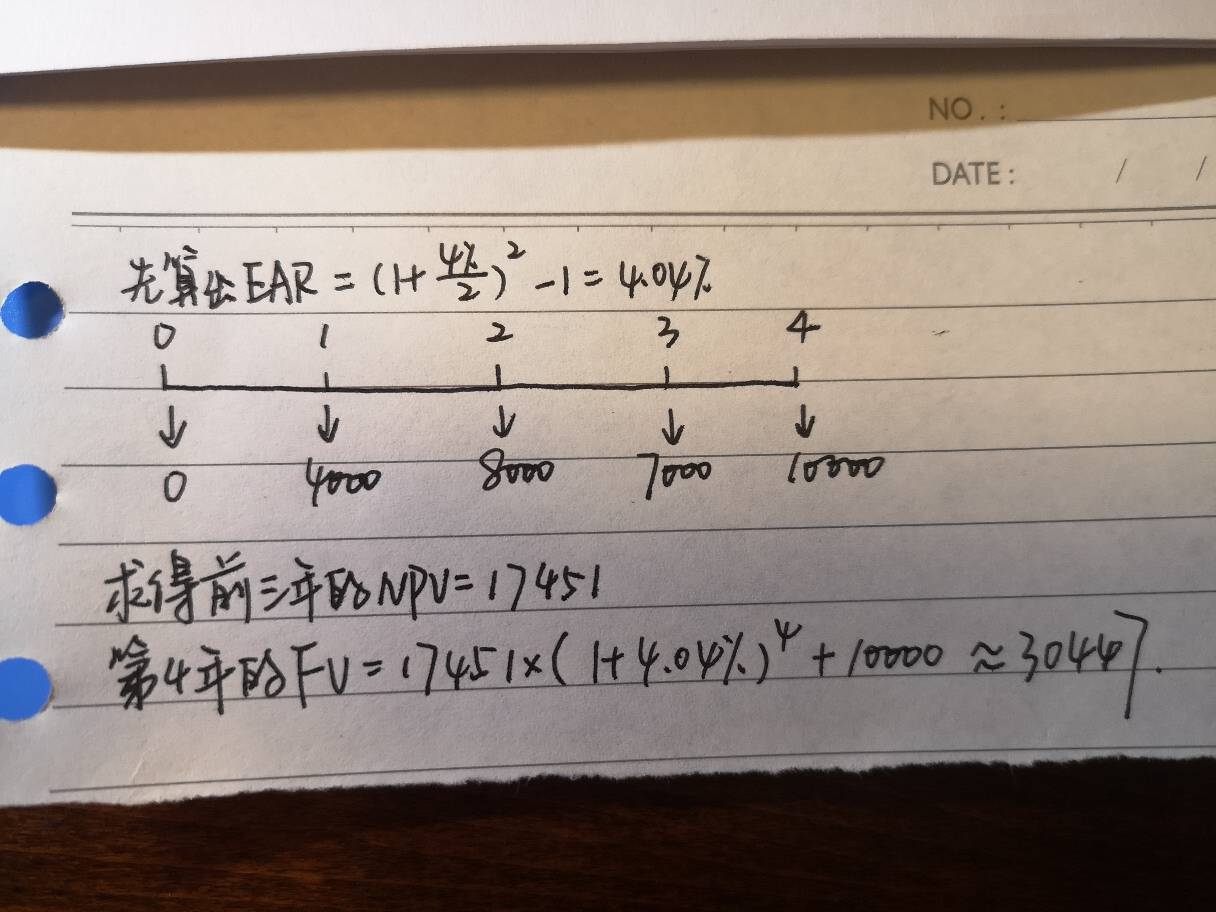 NO. :
DATE: / /
先算出EAR = (1+ 4%/2)² -1 = 4.04%
0 1 2 3 4
↓ ↓ ↓ ↓ ↓
0 4000 8000 7000 10000
求得前三年的NPV=17451
第4年的FV=17451×(1+4.04%)⁴+10000≈30447.